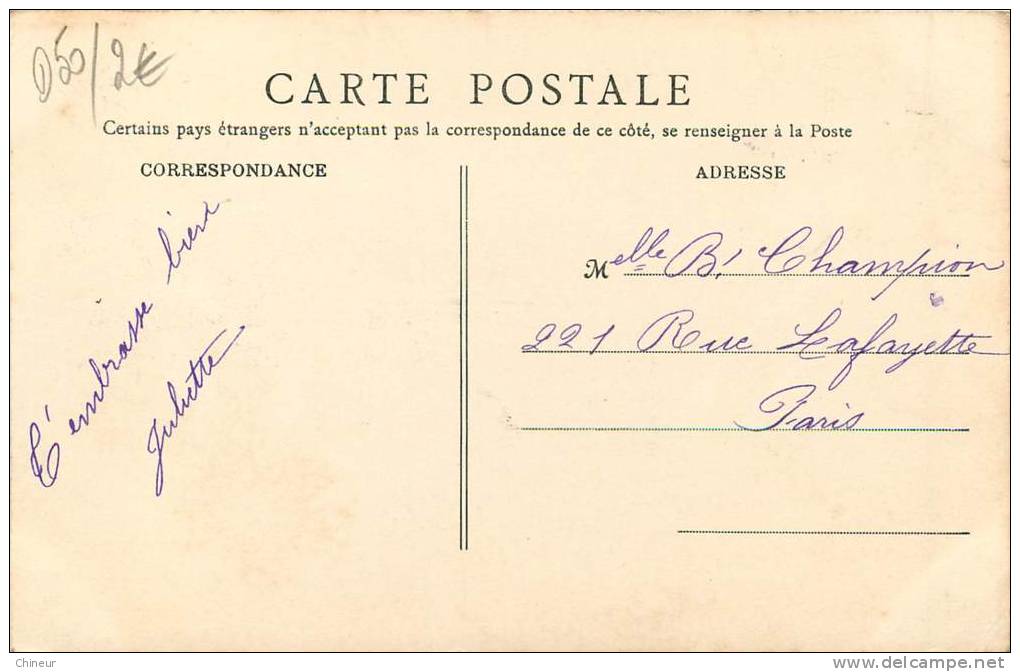 D50/2€
CARTE POSTALE
Certains pays étrangers n'acceptant pas la correspondance de ce côté, se renseigner à la Poste
CORRESPONDANCE
T'embrasse bien
Juliette
ADRESSE
Melle B. Champion
221 Rue Lafayette
Paris
Chineur
www.delcampe.net